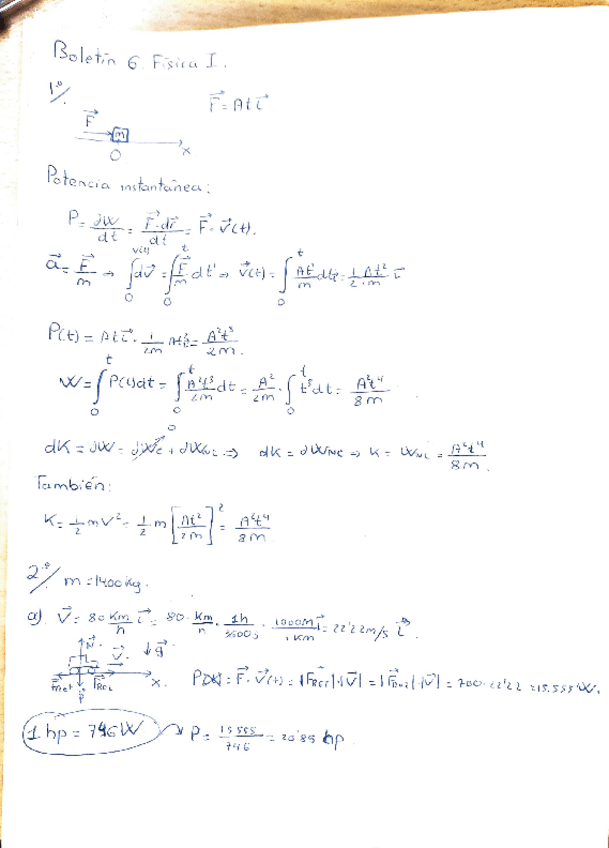 Boletín 6 Física I.
1º/. F⃗ = At i⃗
F⃗ m
O x
Potencia instantánea:
P = dW/dt = F⃗·dr⃗/dt = F⃗·v⃗(t).
a⃗ = F⃗/m → ∫₀^v(t) dv⃗ = ∫₀^t F⃗/m dt' → v⃗(t) = ∫₀^t At'/m dt' = 1/2 · At²/m i⃗
P(t) = At i⃗ · 1/2m At² i⃗ = A²t³/2m.
W = ∫₀^t P(t)dt = ∫₀^t A²t³/2m dt = A²/2m · ∫₀^t t³dt = A²t⁴/8m
dK = dW = dWc + dWNC ⇒ dK = dWNC ⇒ K = WNC = A²t⁴/8m.
0
También:
K = 1/2 mv² = 1/2 m [At²/2m]² = A²t⁴/8m
2º/. m = 1400 kg.
a). V⃗ = 80 Km/h i⃗ = 80 · Km/h · 1h/3600s · 1000m/1Km i⃗ = 22'22 m/s i⃗.
N⃗. v⃗. ↓g⃗
x.
P⃗
= F⃗·v⃗(t) = = 700·22'22 = 15.555W.
1 hp = 746W → P = 15555/746 = 20'85 hp.